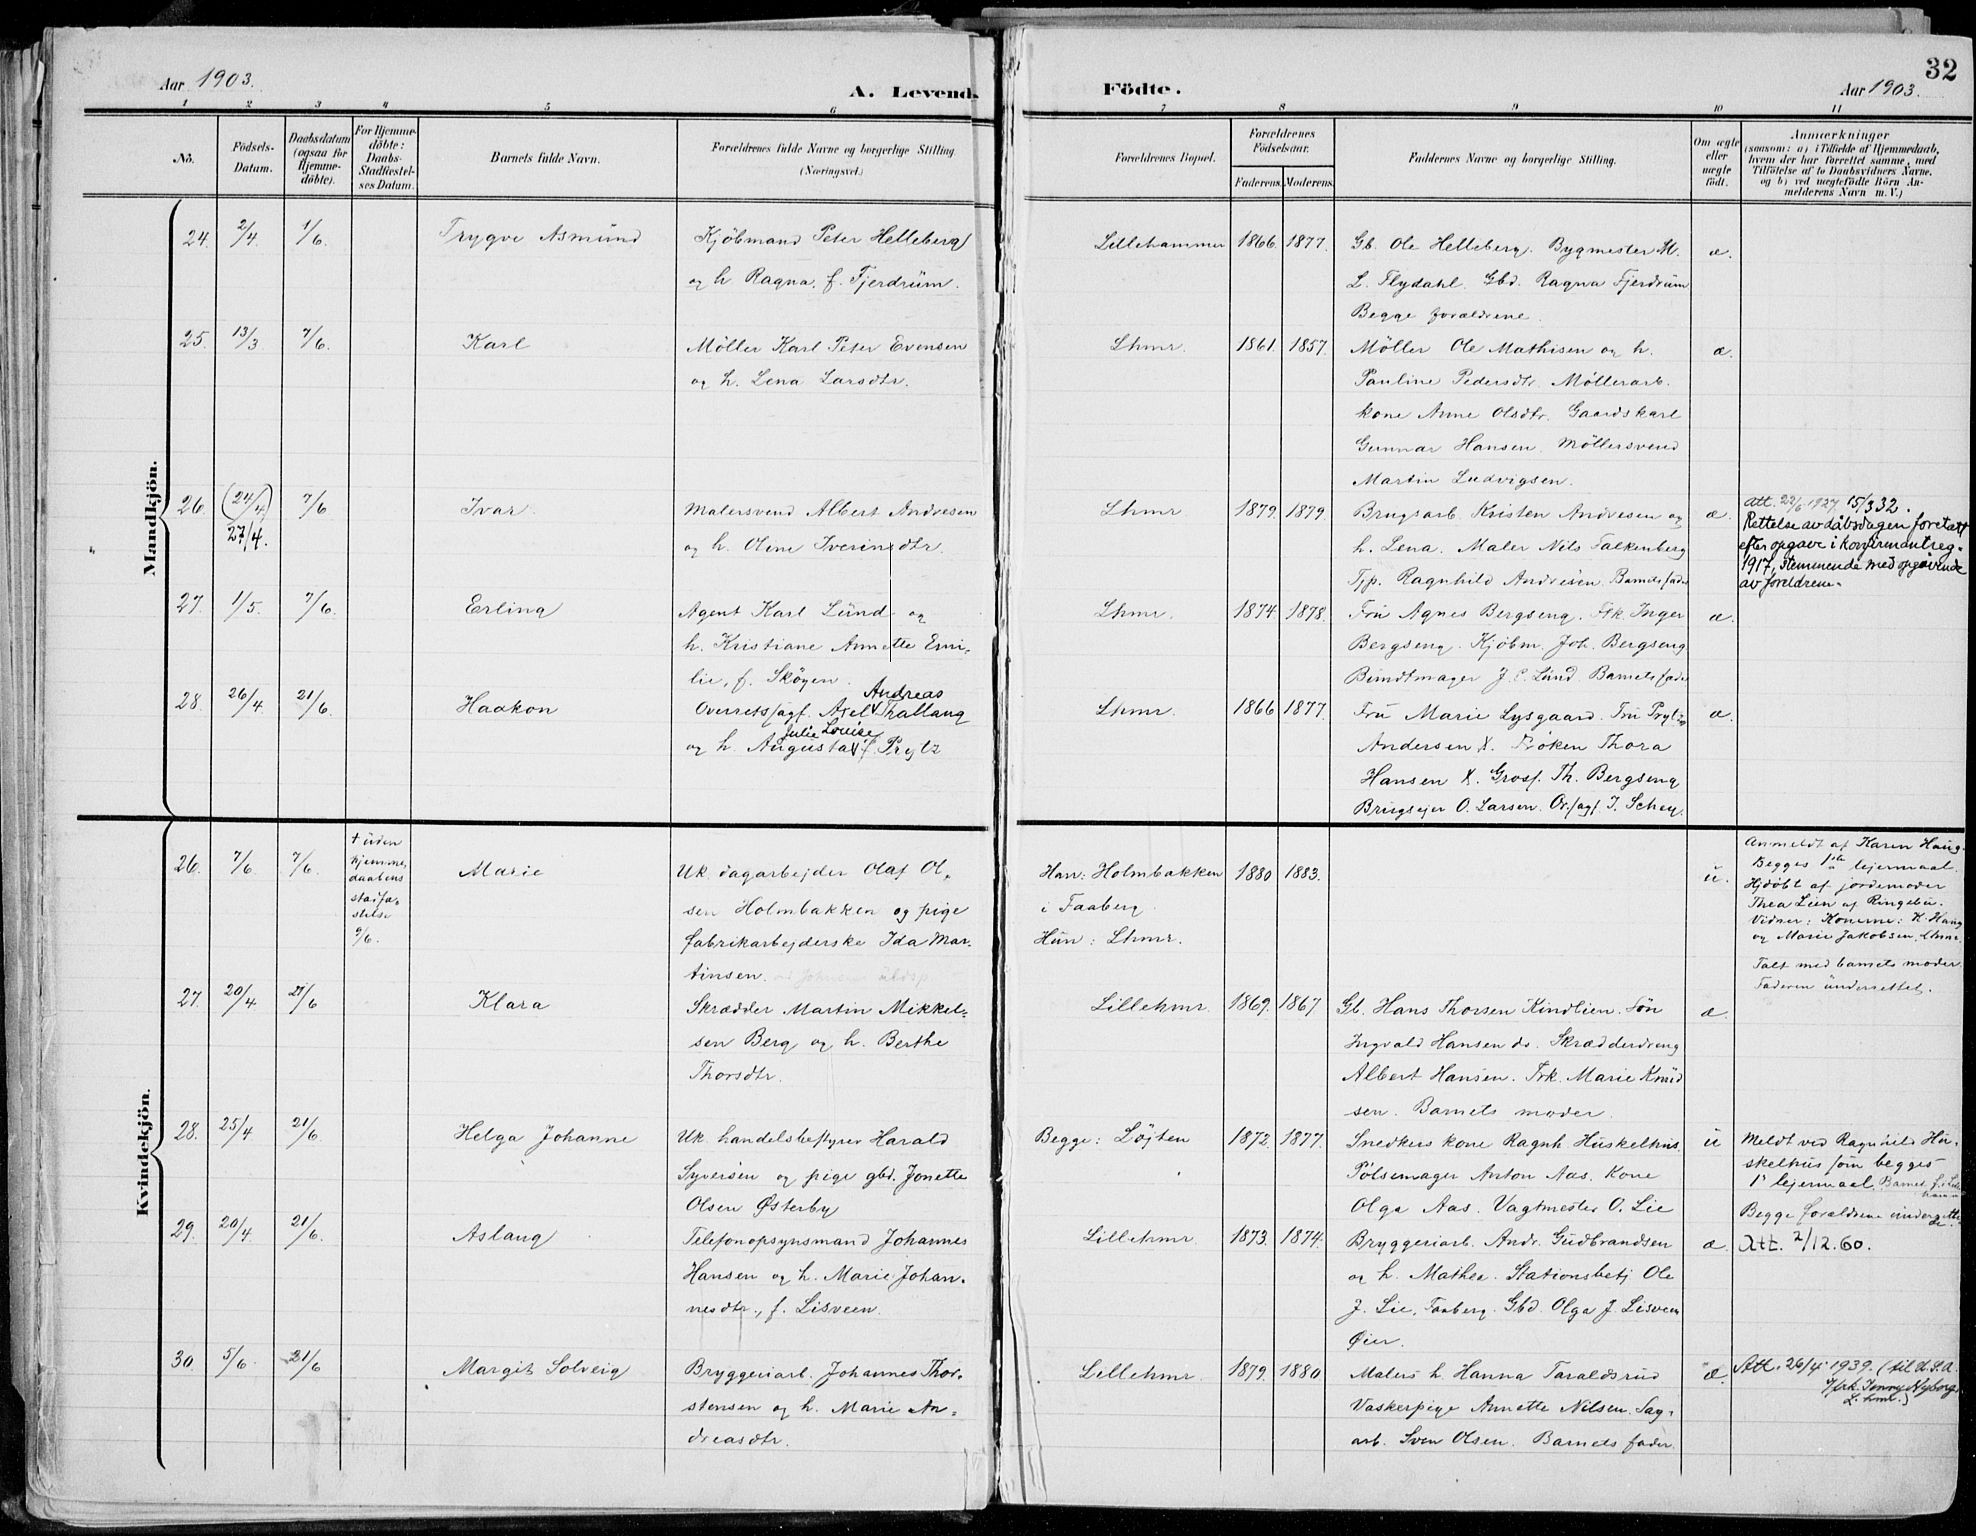 32
Aar 1903.
A. Levende
Födte.
Aar 1903.
1 2 3 4 5 6 7 8 9 10 11
No.
Födsels-
Datum.
Daabsdatum
(ogsaa for
Hjemme-
döbte).
For Hjemme-
döbte:
Daabs-
Stadfæstel-
ses Datum.
Barnets fulde Navn.
Forældrenes fulde Navne og borgerlige Stilling.
(Næringsvei.)
Forældrenes Bopæl.
Forældrenes
Födselsaar.
Faderens. Moderens.
Faddernes Navne og borgerlige Stilling.
Om ægte
eller
uægte
födt.
Anmærkninger
(saasom: a) i Tilfælde af Hjemmedaab,
hvem der har forrettet samme, med
Tilföielse af to Daabsvidners Navne.
og b) ved uægtefödte Börn An-
melderens Navn m. V.)
Mandkjön.
24. 2/4. 1/6. Trygve Asmund Kjöbmand Peter Helleberg Lillehammer 1866. 1877. Gb. Ole Helleberg. Bygmester M. æ.
og h Ragna. f. Fjerdrum. L. Flydahl. Gbd. Ragna Fjerdrum
Begge forældrene.
25. 13/3 7/6. Karl Möller Karl Peter Evensen Lhmr. 1861. 1857. Møller Ole Mathisen og h. æ.
og h. Lena Larsdtr. Pauline Pedersdtr. Möllerarb.
kone Anne Olsdtr. Gaardskarl
Gunnar Hansen. Möllersvend
Martin Ludvigsen.
26. (24/4) 7/6 Ivar Malersvend Albert Andresen Lhmr. 1879. 1879. Brugsarb. Kristen Andresen og æ. Att. 22/6 1927. 15/3 32.
27/4. og h. Oline Iverinsdtr. h. Lena. Maler Nils Falkenberg Rettelse av dåbsdagen foretatt
Tjp. Ragnhild Andresen. Barnets fader efter opgave i konfirmantreg.
1917, stemmende med opgivende
av foreldrene.
27. 1/5. 7/6. Erling Agent Karl Lund og Lhmr. 1874. 1878. Fru Agnes Bergseng. Frk. Inger æ.
h. Kristiane Annette Emi- Bergseng. Kjöbm. Joh. Bergseng
lie, f. Skøyen. Bundtmager J. C. Lund Barnets fader
28. 26/4 21/6. Haakon Overretssagf. Axel Andreas Thallaug Lhmr. 1866 1877. Fru Marie Lysgaard. Fru Prytz æ.
og h. Augusta Julie Louise f. Prytz Andersen X. Fröken Thora
Hansen X. Gross. Th. Bergseng
Brugsejer O. Larsen. Or.sagf. I. Schey.
Kvindekjön.
26. 7/6 7/6. + uden
hjemme-
daabens
stadfæ-
stelse
9/6.
Marie Uk. dagarbejder Olaf Ol- Han: Holmbakken 1880 1883. u.
sen Holmbakken og pige i Faaberg.
fabrikarbejderske Ida Mar- Hun: Lhmr.
tinsen.
Anmeldt af Karen Haug.
Begges 1ste lejermaal.
Hjdöbt af jordemoder
Thea Lien af Ringebu.
Vidner: Konerne: K. Haug
og Marie Jakobsen, Lhmr.
Talt med barnets moder.
Faderen underrettet.
27. 20/4 21/6 Klara Skrædder Martin Mikkel- Lillehmr. 1869. 1867 Gb. Hans Thorsen Kindlien. Søn æ.
sen Berg og h. Berthe Ingvald Hansen ds. Skrædderdreng
Thorsdtr. Albert Hansen. Frk. Marie Knud
sen. Barnets moder.
28. 25/4 21/6. Helga Johanne Uk. handelsbestyrer Harald Begge: Løjten 1872. 1877. Snedkers kone Ragnh. Huskelhus u Meldt ved Ragnhild Hu-
Syversen og pige gbd. Jonette Pölsemager Anton Aas. Kone skelhus som begges
Olsen Østerby Olga Aas. Vagtmester O. Lie 1' lejermaal. Barnet f. i Lille
Begge forældrene underrettede
29. 20/4 21/6. Aslaug Telefonopsynsmand Johannes Lillehmr. 1873. 1874. Bryggeriarb. Andr. Gudbrandsen æ. Att. 2/12.60.
Hansen og h. Marie Johan- og h. Mathea. Stationsbetj Ole
nesdtr., f. Lisveen. J. Lie, Faaberg. Gbd. Olga J. Lisveen
Øier.
30. 5/6. 21/6 Margit Solveig Bryggeriarb. Johannes Thor- Lillehmr. 1879. 1880 Malers h. Hanna Taraldsrud æ. Att. 26/4 1939. (til d.S.A.
stensen og h. Marie An- Vaskerpige Annette Nilsen. Sag- v/frk. Jenny Nyborg.
dreasdtr. arb. Sven Olsen. Barnets fader. L.hmr.)